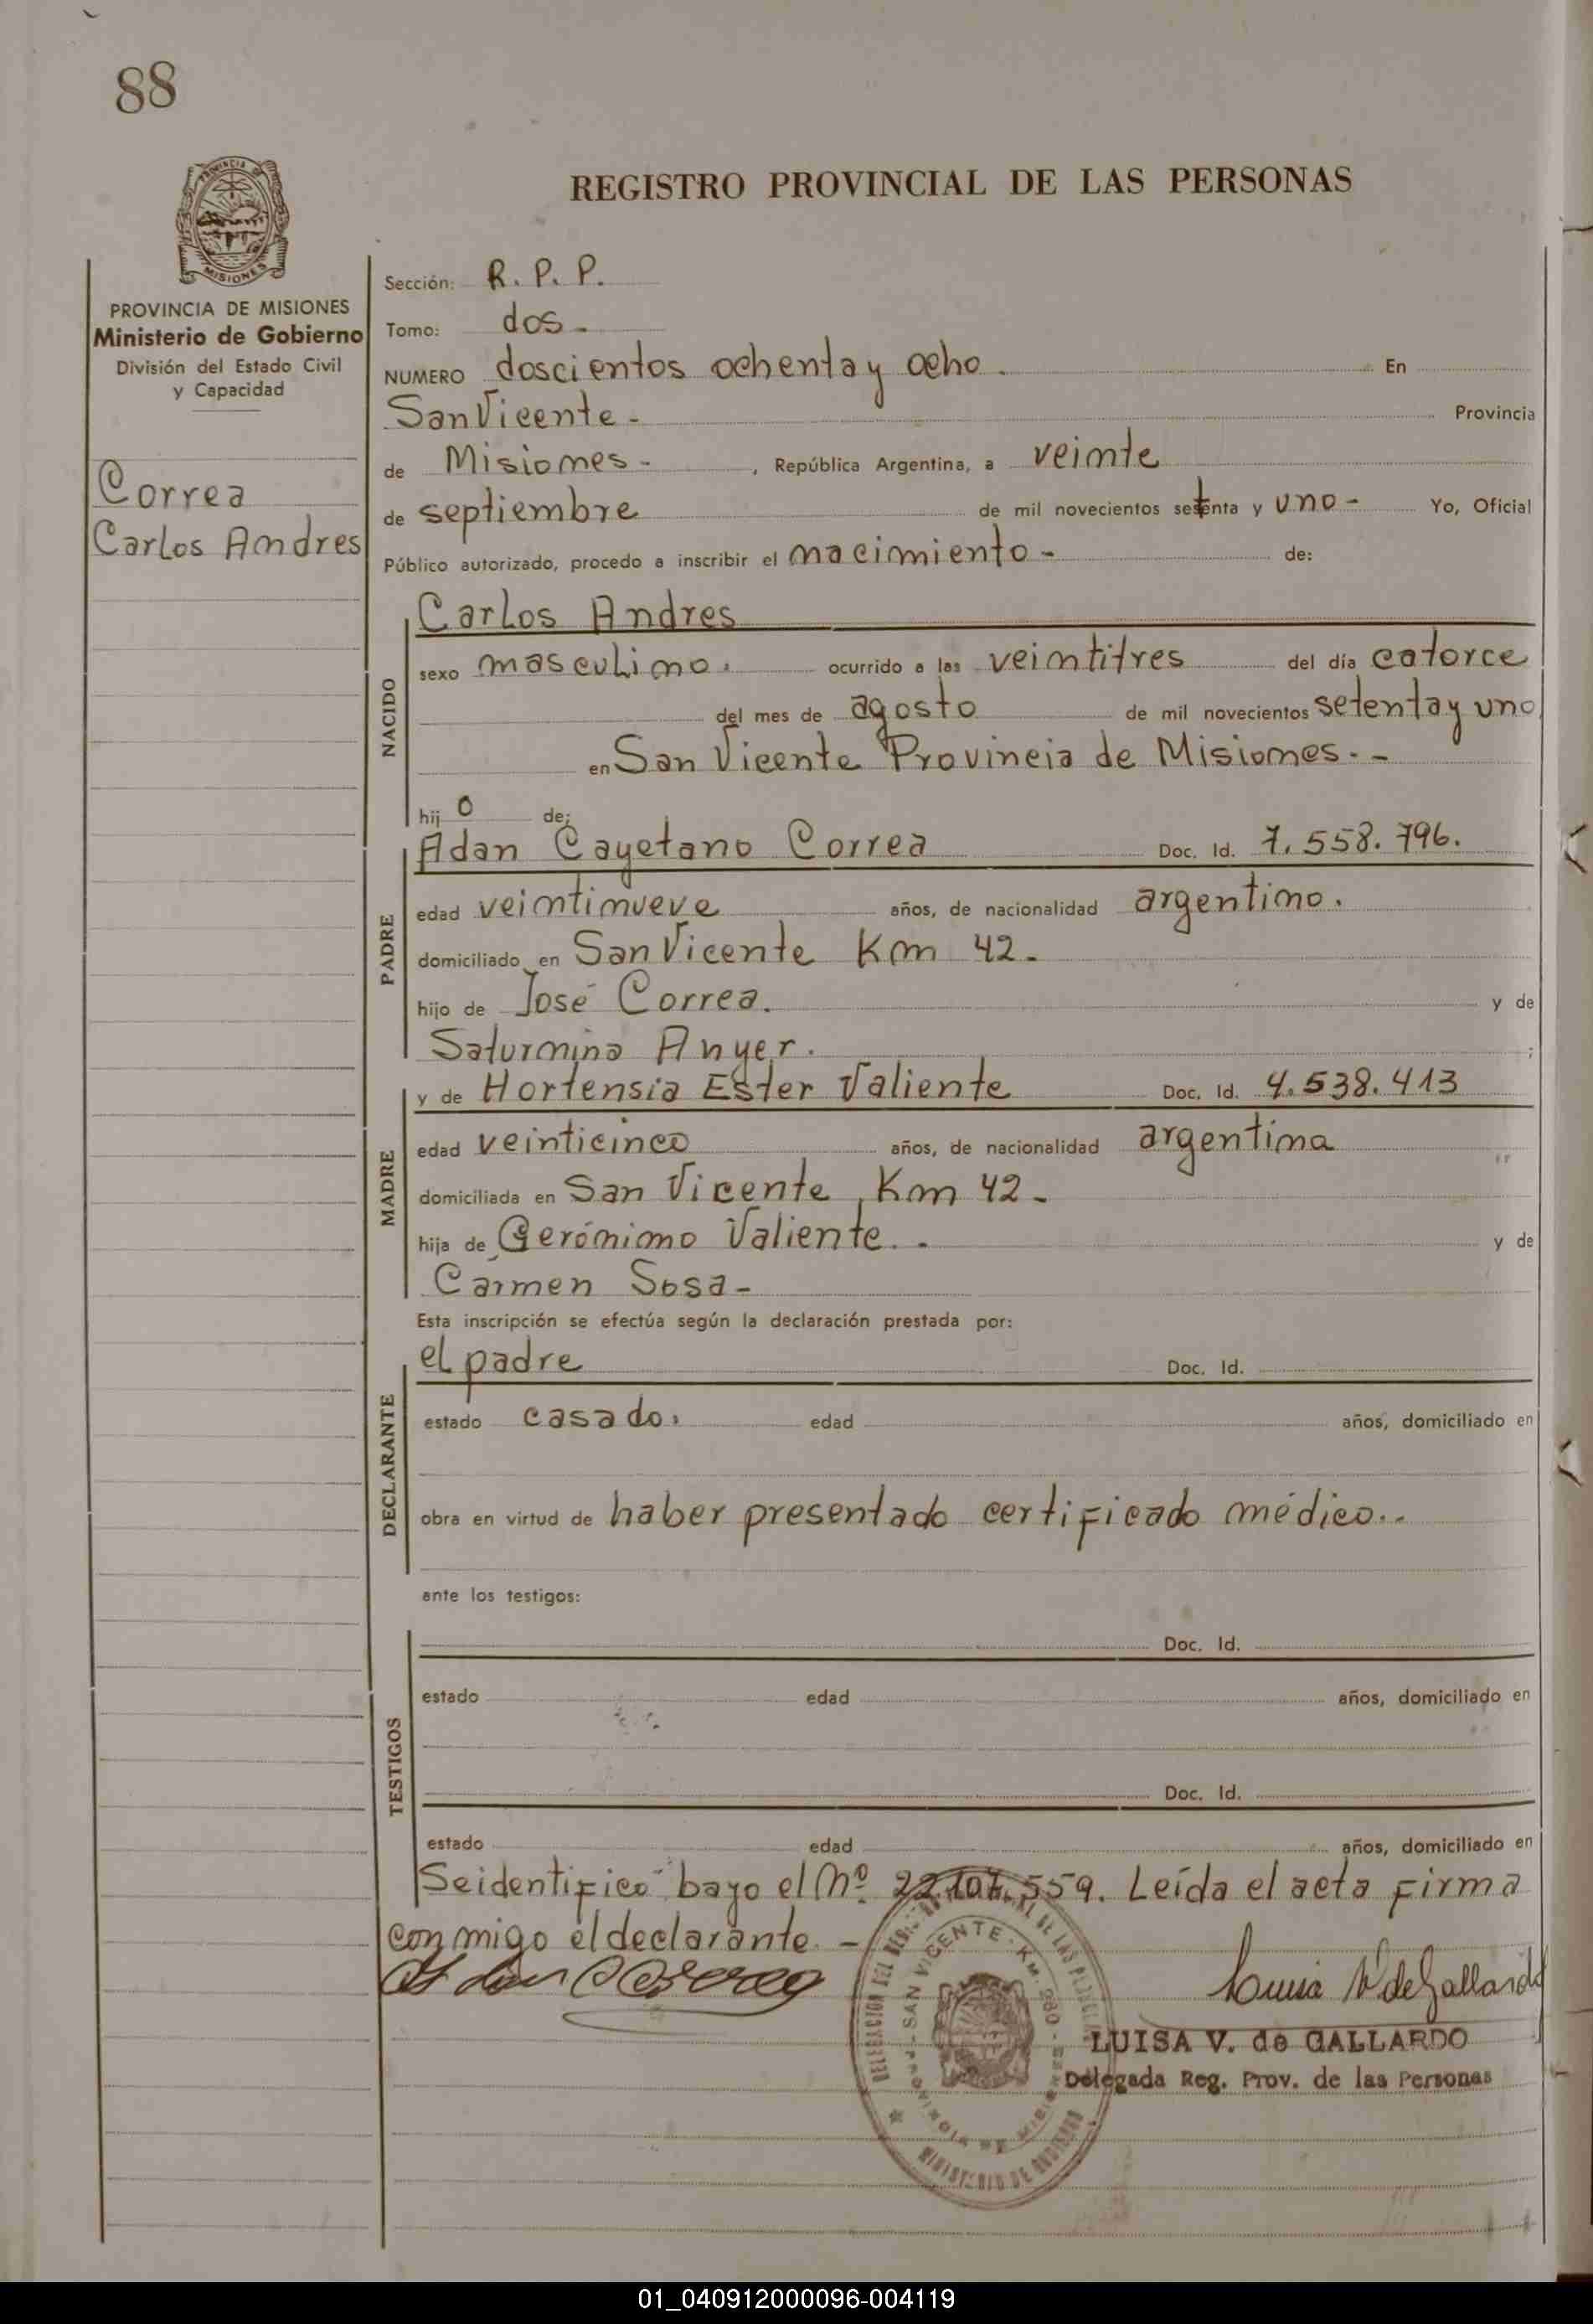 88
PROVINCIA DE
MISIONES
REGISTRO PROVINCIAL DE LAS PERSONAS
PROVINCIA DE MISIONES
Ministerio de Gobierno
División del Estado Civil
y Capacidad
Correa
Carlos Andres
Sección: R. P. P.
Tomo: dos-
NUMERO doscientos ochenta y ocho. En
San Vicente- Provincia
de Misiones-, República Argentina, a veinte
de septiembre de mil novecientos setenta y uno- Yo, Oficial
Público autorizado, procedo a inscribir el nacimiento- de:
NACIDO
Carlos Andres
sexo masculino. ocurrido a las veintitres del día catorce
del mes de agosto de mil novecientos setenta y uno
en San Vicente Provincia de Misiones.-
hij o de:
PADRE
Adan Cayetano Correa Doc. Id. 7.558.796.
edad veintinueve años, de nacionalidad argentino.
domiciliado en San Vicente Km 42-
hijo de José Correa. y de
Saturnina Anyer. ;
MADRE
y de Hortensia Ester Valiente Doc. Id. 4.538.413
edad veinticinco años, de nacionalidad argentina
domiciliada en San Vicente, Km 42-
hija de Gerónimo Valiente.- y de
Carmen Sosa-
Esta inscripción se efectúa según la declaración prestada por:
DECLARANTE
el padre Doc. Id.
estado casado. edad años, domiciliado en
obra en virtud de haber presentado certificado médico..
ante los testigos:
TESTIGOS
Doc. Id.
estado edad años, domiciliado en
Doc. Id.
estado edad años, domiciliado en
Se identificó bajo el Nº 22.107.559. Leída el acta firma
conmigo el declarante.-
Luisa V de Gallardo
LUISA V. de GALLARDO
Delegada Reg. Prov. de las Personas
SAN VICENTE - KM.
PROVINCIA DE MISIONES
MINISTERIO DE GOBIERNO
01_040912000096-004119